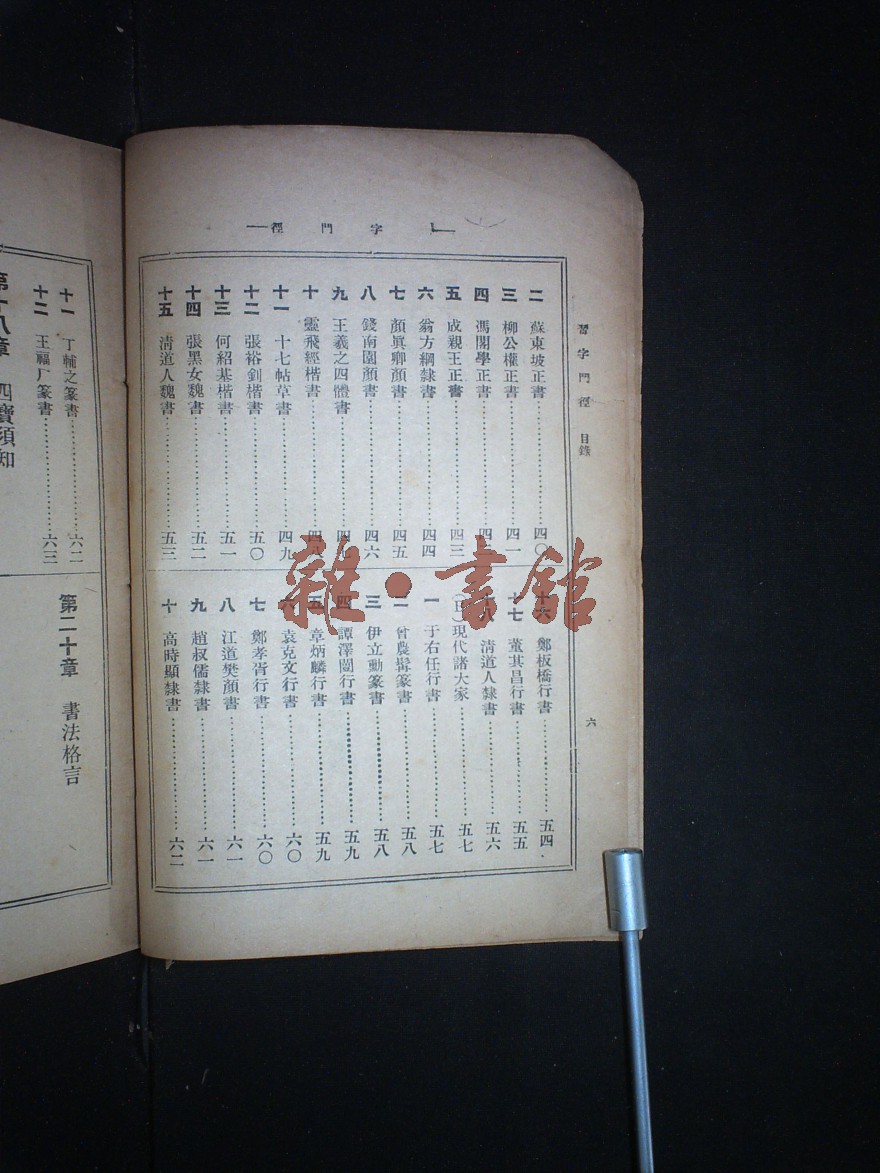 徑門字
習字門徑 目錄
六
二 蘇東坡正書 四〇
三 柳公權正書 四一
四 馮閣學正書 四
五 成親王正書 四三
六 翁方綱隸書 四四
七 顏眞卿顏書 四五
八 錢南園顏書 四六
九 王羲之四體書 四
十 靈飛經楷書 四八
十一 十七帖草書 四九
十二 張裕釗楷書 五〇
十三 何紹基楷書 五一
十四 張黑女魏書 五二
十五 淸道人魏書 五三
十六 鄭板橋行書 五四
十七 董其昌行書 五五
淸道人隸書 五六
現代諸大家 五七
一 于右任行書 五七
二 曾農髯篆書 五八
三 伊立勳篆書 五八
四 譚澤闓行書 五九
五 章炳麟行書 五九
六 袁克文行書 六〇
七 鄭孝胥行書 六〇
八 江道樊顏書 六一
九 趙叔儒隸書 六一
十 高時顯隸書 六二
十一 丁輔之篆書 六二
十二 王福厂篆書 六三
第十八章 四寶須知
第二十章 書法格言
雜·書館